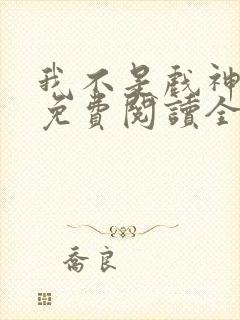 我不是戲神
免費閱讀全
喬良